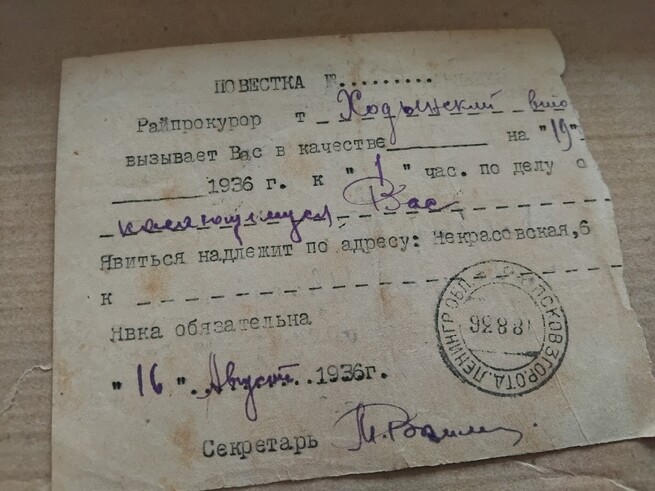 ПОВЕСТКА №.........
Райпрокурор т Ходынский
вызывает Вас в качестве ________ на "19"
________ 1936 г. к "1" час. по делу о
касающимуся Вас
Явиться надлежит по адресу: Некрасовская,6
к
Явка обязательна
"16". Август..1936г.
Секретарь
ПСКОВ 3 ГОР.ОТД. ЛЕНИНГР.ОБЛ.
18 8 36